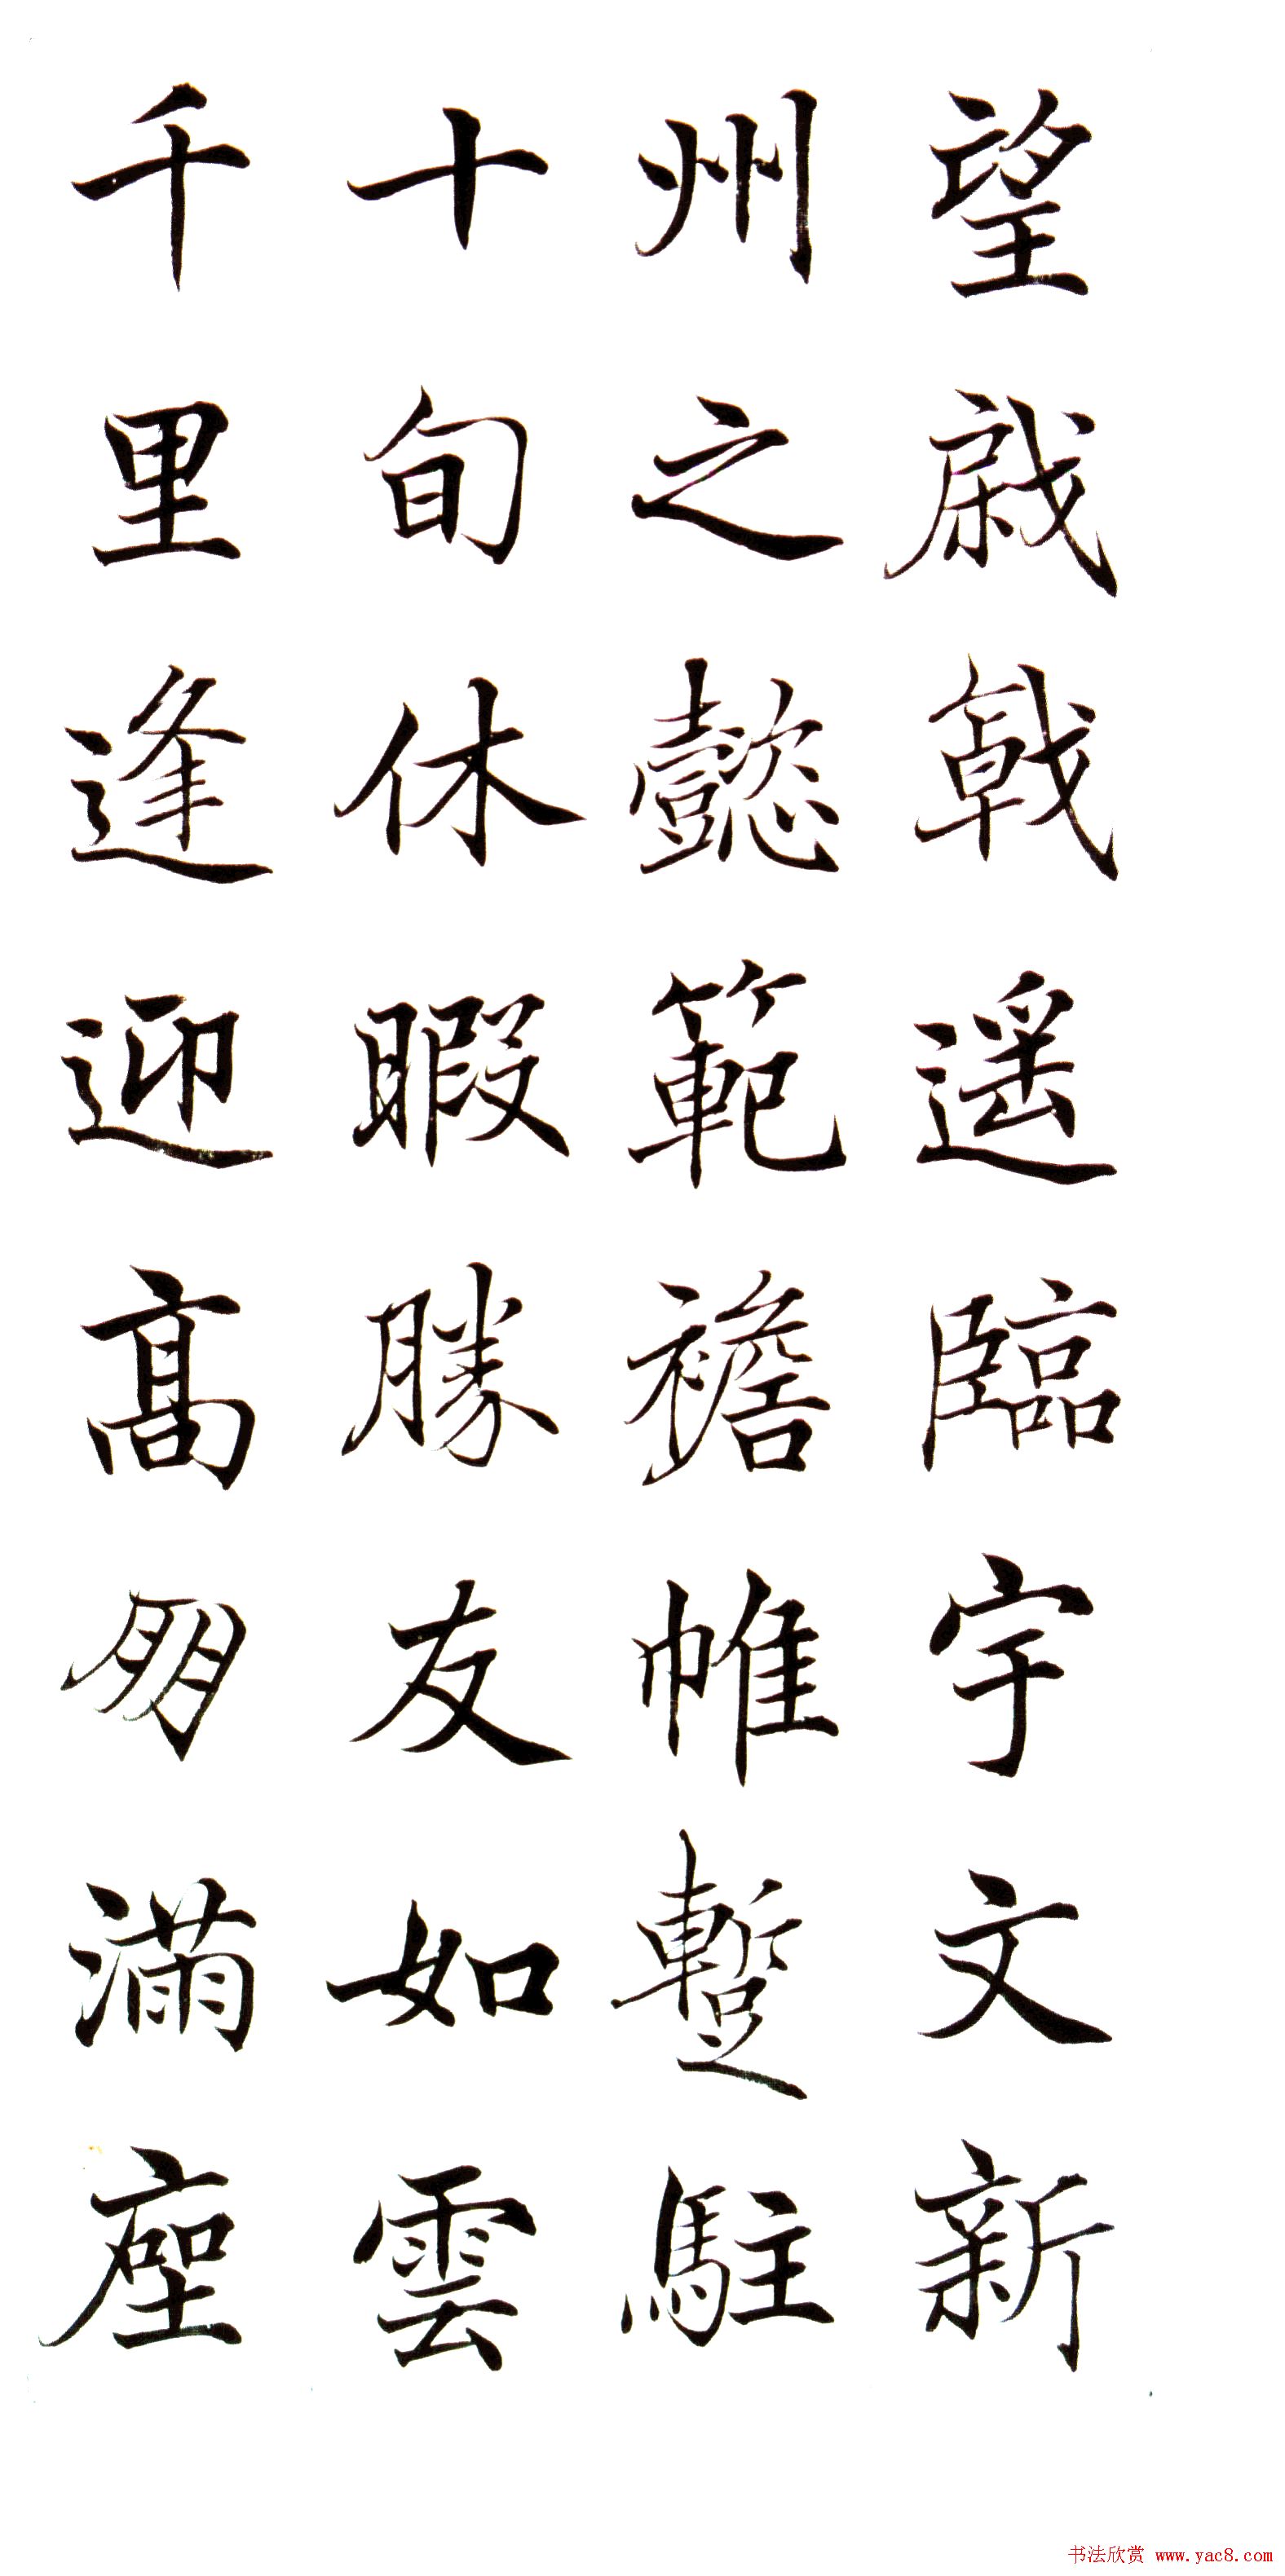 望戚戟遥臨宇文新
州之懿範襜帷蹔駐
十旬休暇勝友如雲
千里逢迎高朋滿座
书法欣赏 www.yac8.com